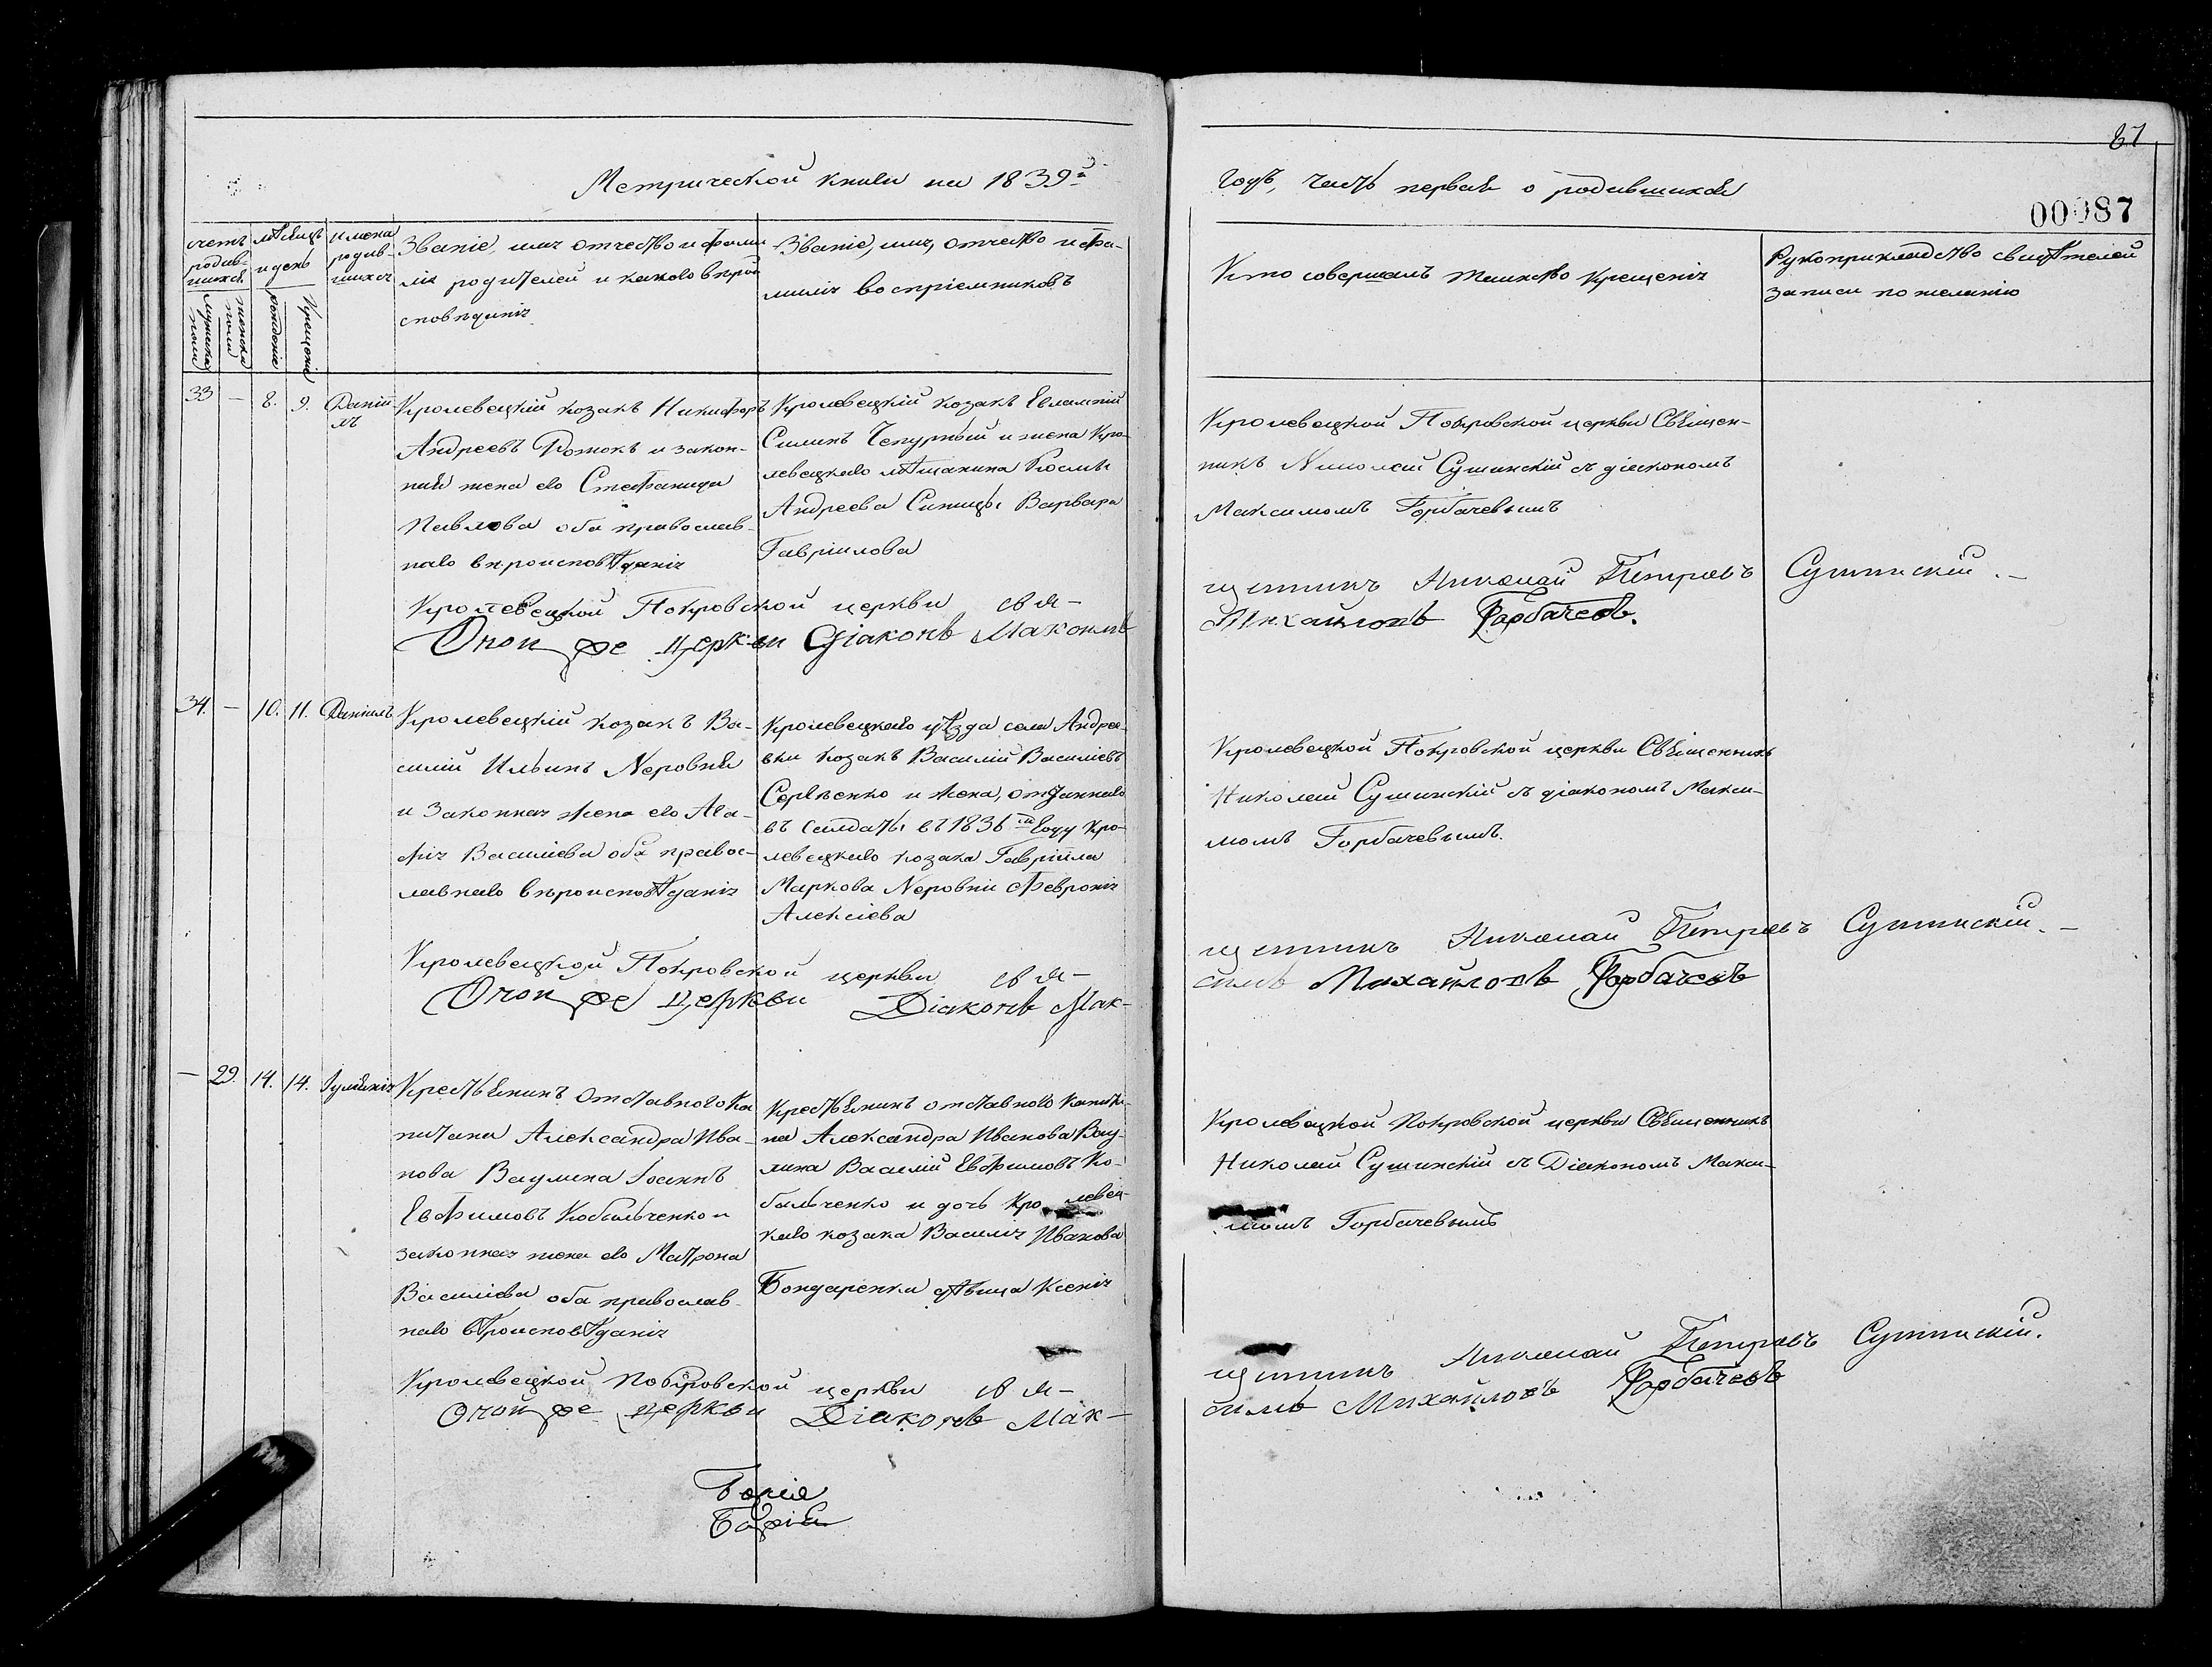 Метрической книги на 1839й
годъ, часть первая о родившихся
87
00087
счетъ родив-
шихся
мужеска
пола
женска
пола
мѣсяцъ
и день
рожденіе
крещеніе
имена
родив-
шихся
Званіе, имя отчество и фами-
лія родителей и какого вѣрои-
сповѣданія
Званіе, имя, отчество и фа-
милія воспріемниковъ
Кто совершалъ таинство крещенія
Рукоприкладство свидѣтелей
записи по желанію
33 — 8. 9. Даніи-
лъ
Кролевецкій козакъ Никифоръ
Андреевъ и закон-
ная жена его Стефанида
Павлова оба православ-
наго вѣроисповѣданія
Кролевецкій козакъ Евлампій
Силинъ Чепурный и жена Кро-
левецкаго мѣщанина Космы
Андреева Синицы Варвара
Гавріилова
Кролевецкой Покровской церкви Священ-
никъ Николай Сушинскій съ діакономъ
Максимомъ Горбачевымъ
Кролевецкой Покровской церкви свя-
щенникъ Николай Петровъ Сушинскій.
Оной же церкви Діаконъ Максимъ
Михайловъ Горбачевъ.
34. — 10. 11. Даніилъ
Кролевецкій козакъ Ва-
силій Ильинъ Неровня
и законная жена его Ага-
фія Василіева оба правос-
лавнаго вѣроисповѣданія
Кролевецкаго уѣзда села Андрее-
вки козакъ Василій Василіевъ
Сергѣенко и жена, отданнаго
въ солдаты въ 1836м году Кро-
левецкаго козака Гавріила
Маркова Неровни Февронія
Алексіева
Кролевецкой Покровской церкви Священникъ
Николай Сушинскій съ діакономъ Макси-
момъ Горбачевымъ.
Кролевецкой Покровской церкви свя-
щенникъ Николай Петровъ Сушинскій.
Оной же церкви Діаконъ Мак-
симъ Михайловъ Горбачевъ
— 29. 14. 14. Іуліянія
Крестьянинъ отставного Ка-
питана Александра Ива-
нова Ваулина Іоаннъ
Евфимовъ Кобыльченко и
законная жена его Матрона
Василіева оба православ-
наго вѣроисповѣданія
Крестьянинъ отставного капита-
на Александра Иванова Вау-
лина Василій Евфимовъ Ко-
быльченко и дочь Кролевец-
каго козака Василія Иванова
Бондаренка дѣвица Ксенія
Кролевецкой Покровской церкви Священникъ
Николай Сушинскій съ Діакономъ Макси-
момъ Горбачевымъ
Кролевецкой Покровской церкви свя-
щенникъ Николай Петровъ Сушинскій.
Оной же церкви Діаконъ Мак-
симъ Михайловъ Горбачевъ